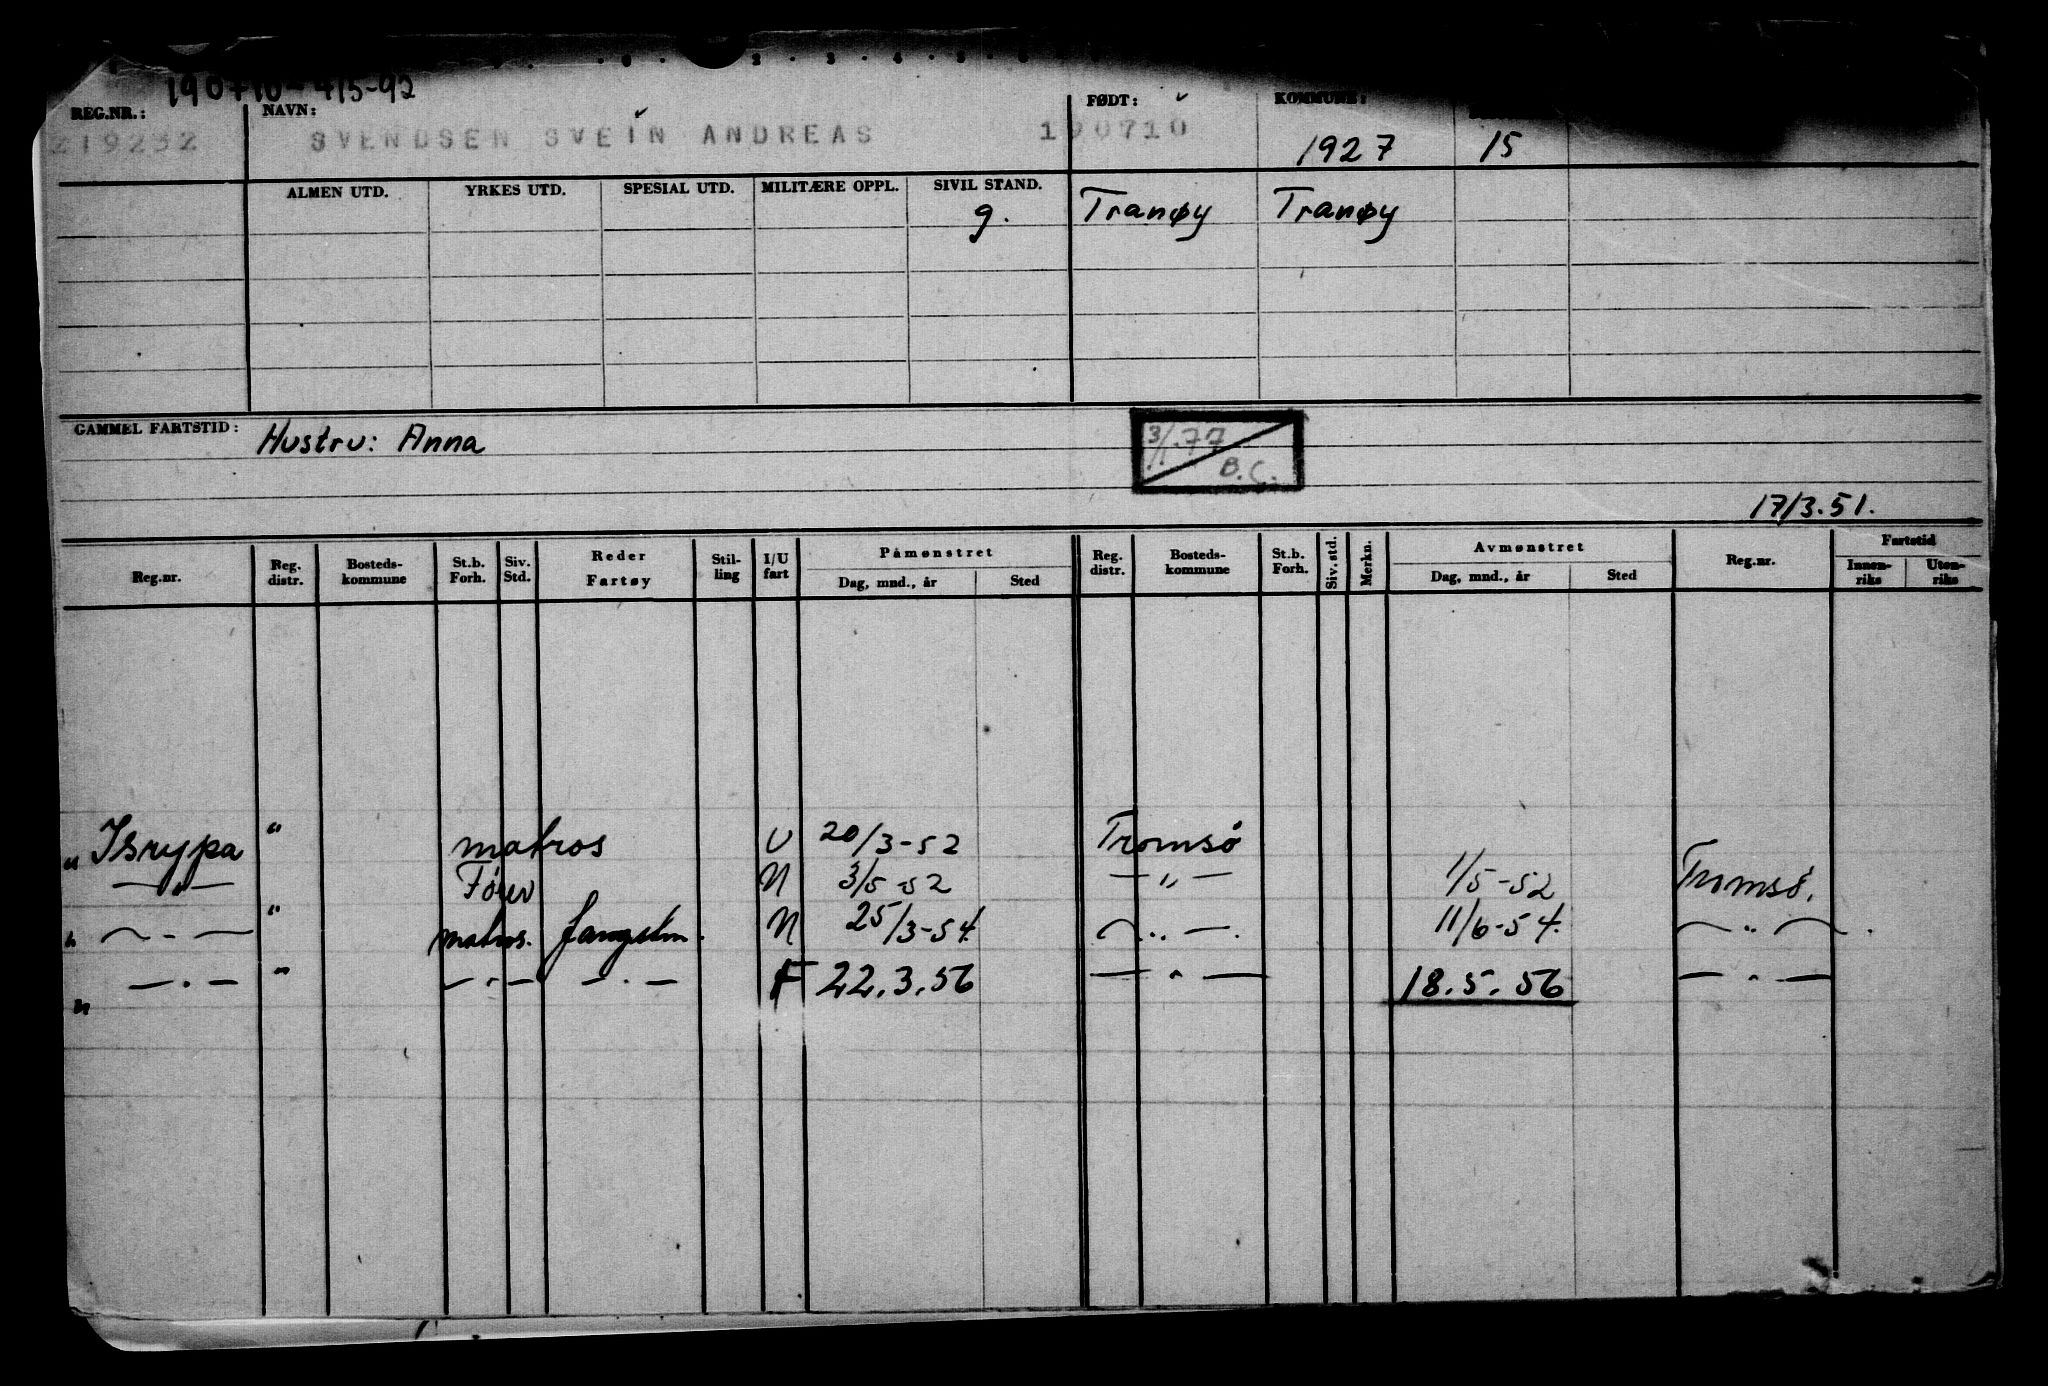 190710-415-92
REG.NR.: NAVN: FØDT: KOMMUNE:
219232 SVENDSEN SVEIN ANDREAS 190710 1927 15
ALMEN UTD. YRKES UTD. SPESIAL UTD. MILITÆRE OPPL. SIVIL STAND.
g. Tranøy Tranøy
GAMMEL FARTSTID: Hustru: Anna
3/1.77
B.C.
17/3.51.
Reg.nr. Reg. distr. Bosteds-kommune St.b. Forh. Siv. Std. Reder Fartøy Stil-ling I/U fart Påmønstret Dag, mnd., år Sted Reg. distr. Bosteds-kommune St.b. Forh. Siv. std. Merkn. Avmønstret Dag, mnd., år Sted Reg.nr. Fartstid Innen-riks Uten-riks
" Isrypa " matros U 20/3-52 Tromsø
— " — Fører N 3/5-52 — " — 1/5-52 Tromsø.
" — " — " matros. fangstm. N 25/3-54. — " —. 11/6-54. — " —.
" — " — " — " — — " — F 22.3.56 — " — 18.5.56 — " —